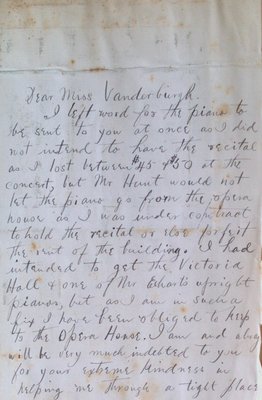 Dear Miss Vanderburgh.
I left word for the piano to
be sent to you at once as I did
not intend to have the recital
as I lost between $45 & $50 at the
concert, but Mr Hunt would not
let the piano go from the opera
house as I was under contract
to hold the recital or else forfeit
the rent of the building. I had
intended to get the Victoria
Hall & one of Mr upright
pianos, but as I am in such a
fix I have been obliged to keep
to the Opera House. I am and always
will be very much indebted to you
for your extreme kindness in
helping me through a tight place